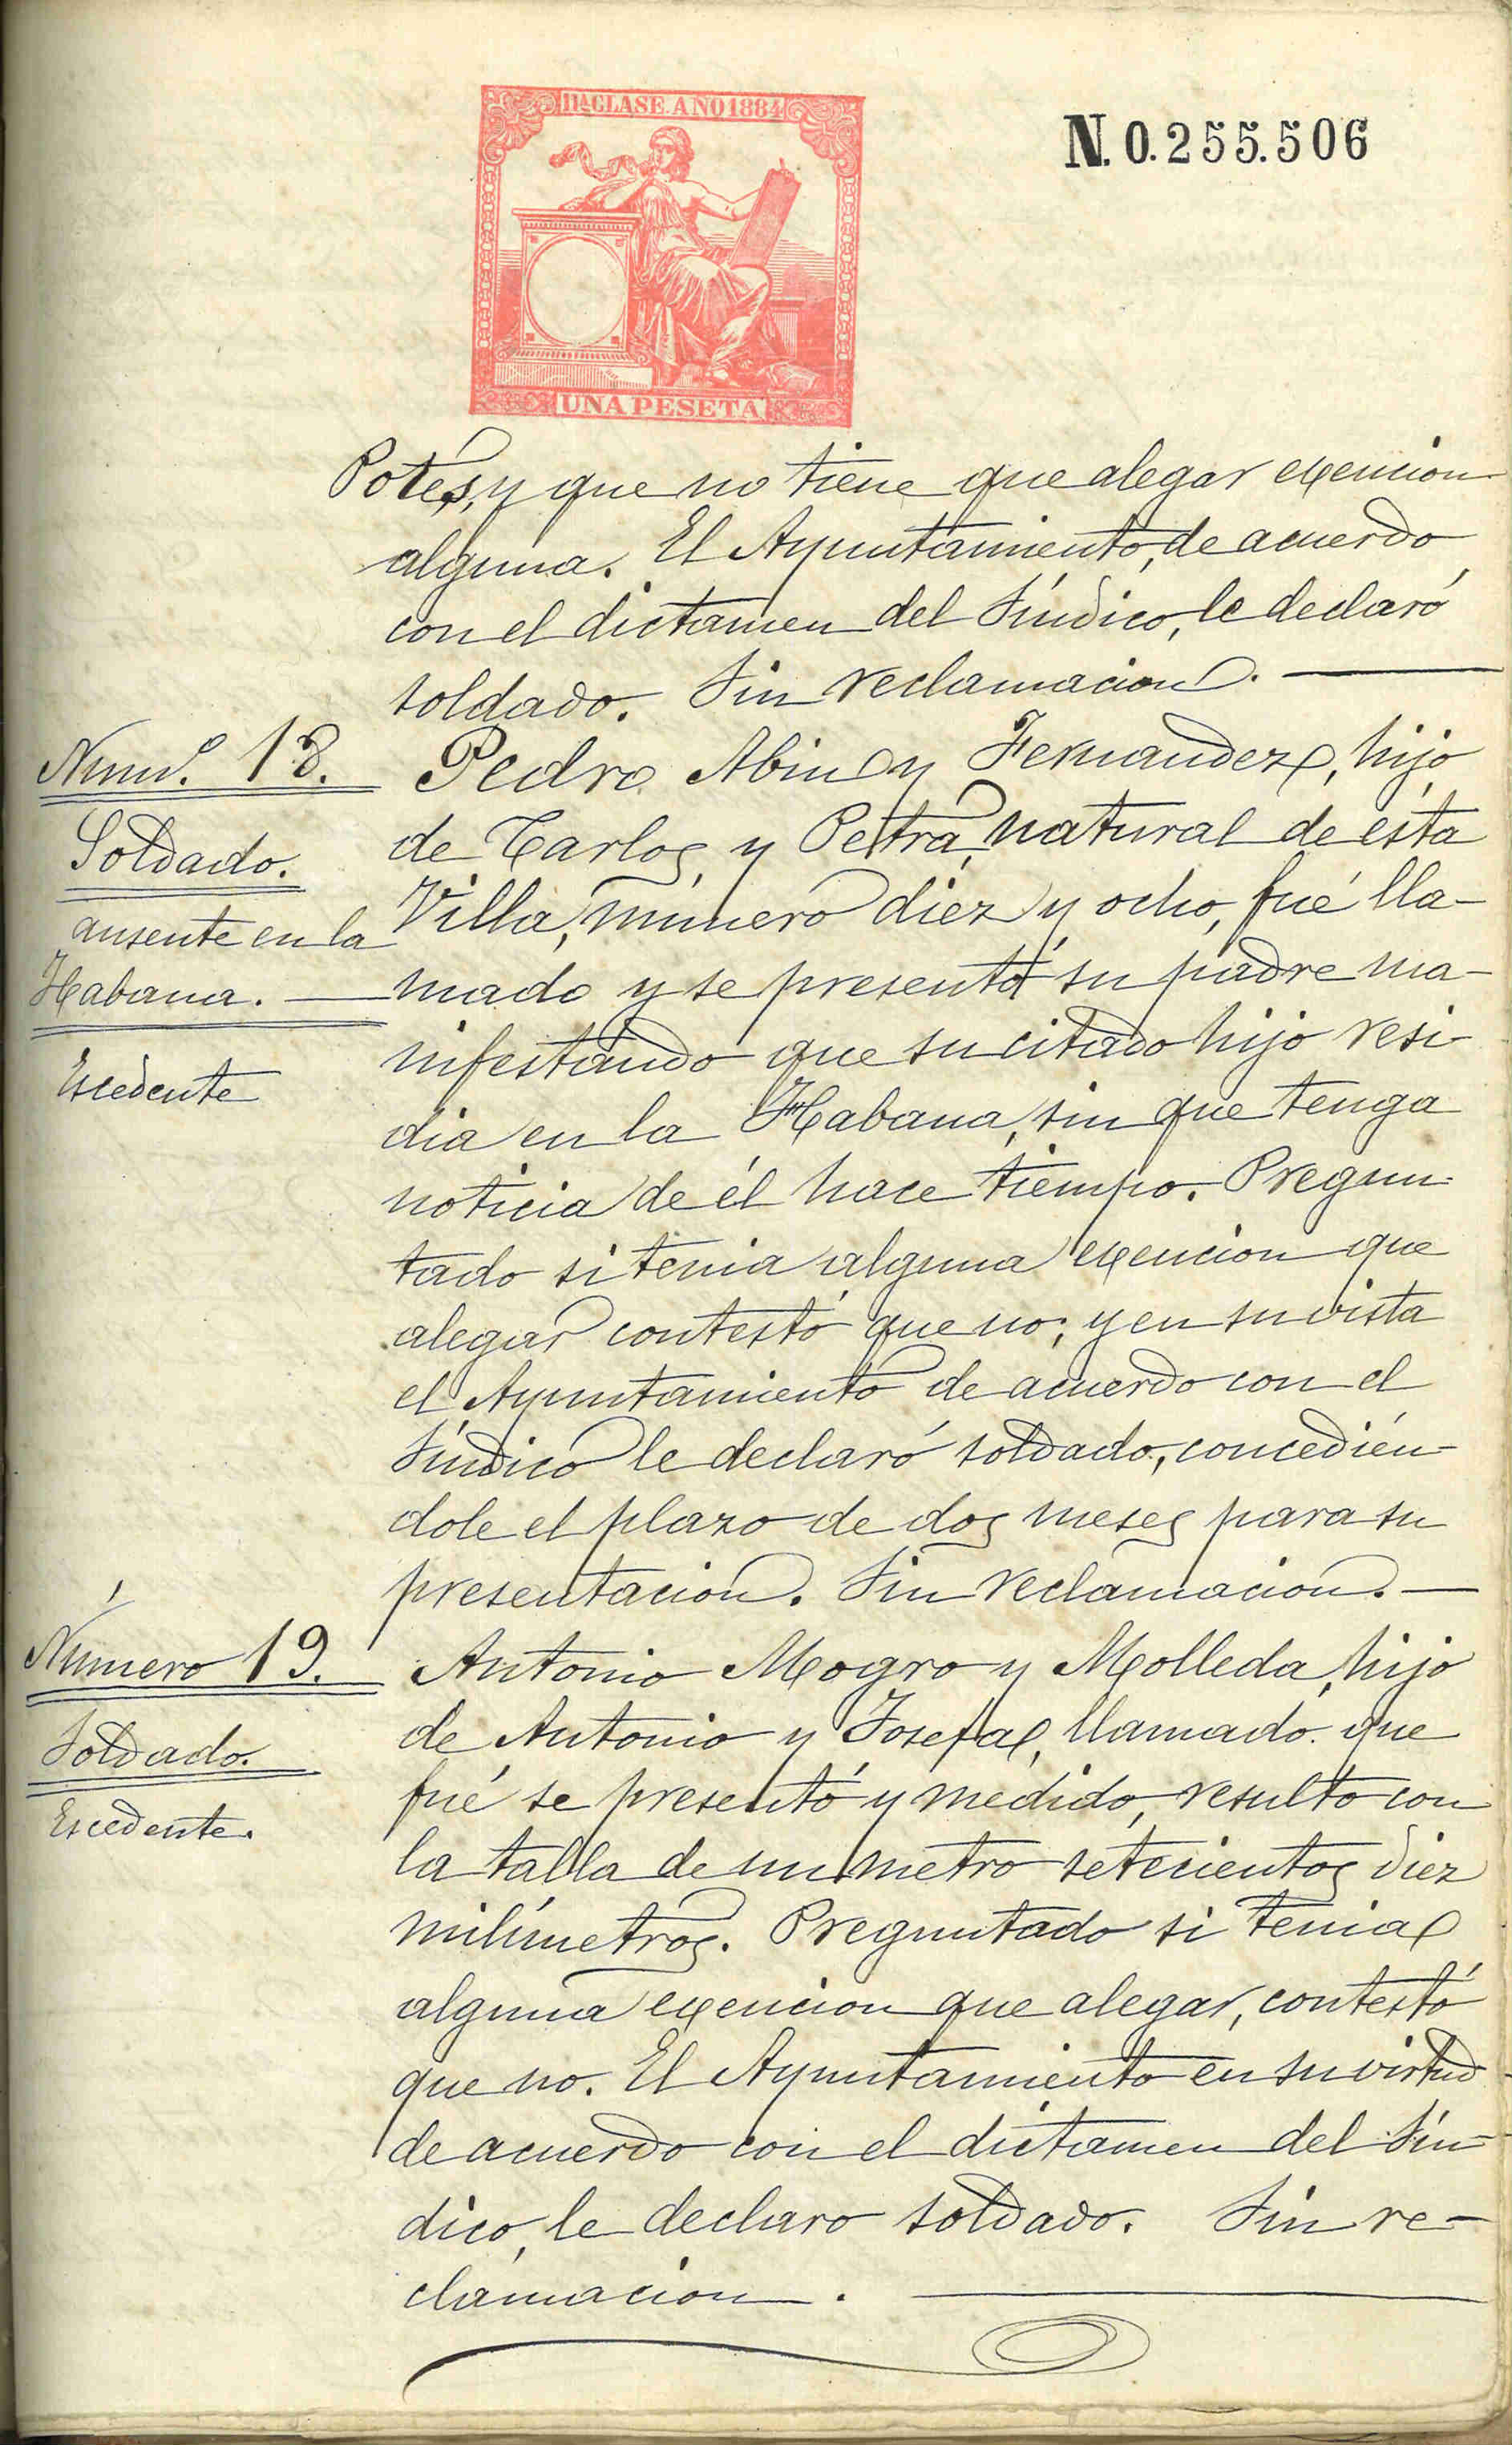 11ª CLASE. AÑO 1884
N. 0.255.506
UNA PESETA
Potes, y que no tiene que alegar exencion
alguna. El Ayuntamiento, de acuerdo
con el dictamen del Síndico, le declaró
soldado. Sin reclamacion.
Num.º 18.
Soldado.
ausente en la
Habana.
Escedente
Pedro Abin y Fernandez, hijo
de Carlos y Petra, natural de ésta
Villa, número diez y ocho, fué lla-
mado y se presentó su padre ma-
nifestando que su citado hijo resi-
dia en la Habana, sin que tenga
noticia de él hace tiempo. Pregun-
tado si tenia alguna exencion que
alegar contestó que no; y en su vista
el Ayuntamiento de acuerdo con el
Síndico le declaró soldado, concedién-
dole el plazo de dos meses para su
presentacion. Sin reclamacion.
Número 19.
Soldado.
Escedente.
Antonio Mogro y Molleda, hijo
de Antonio y Josefa, llamado que
fué se presentó y medido, resulto con
la talla de un metro setecientos diez
milímetros. Preguntado si tenia
alguna exencion que alegar, contestó
que no. El Ayuntamiento en su virtud
de acuerdo con el dictamen del Sín-
dico, le declaro soldado. Sin re-
clamacion.